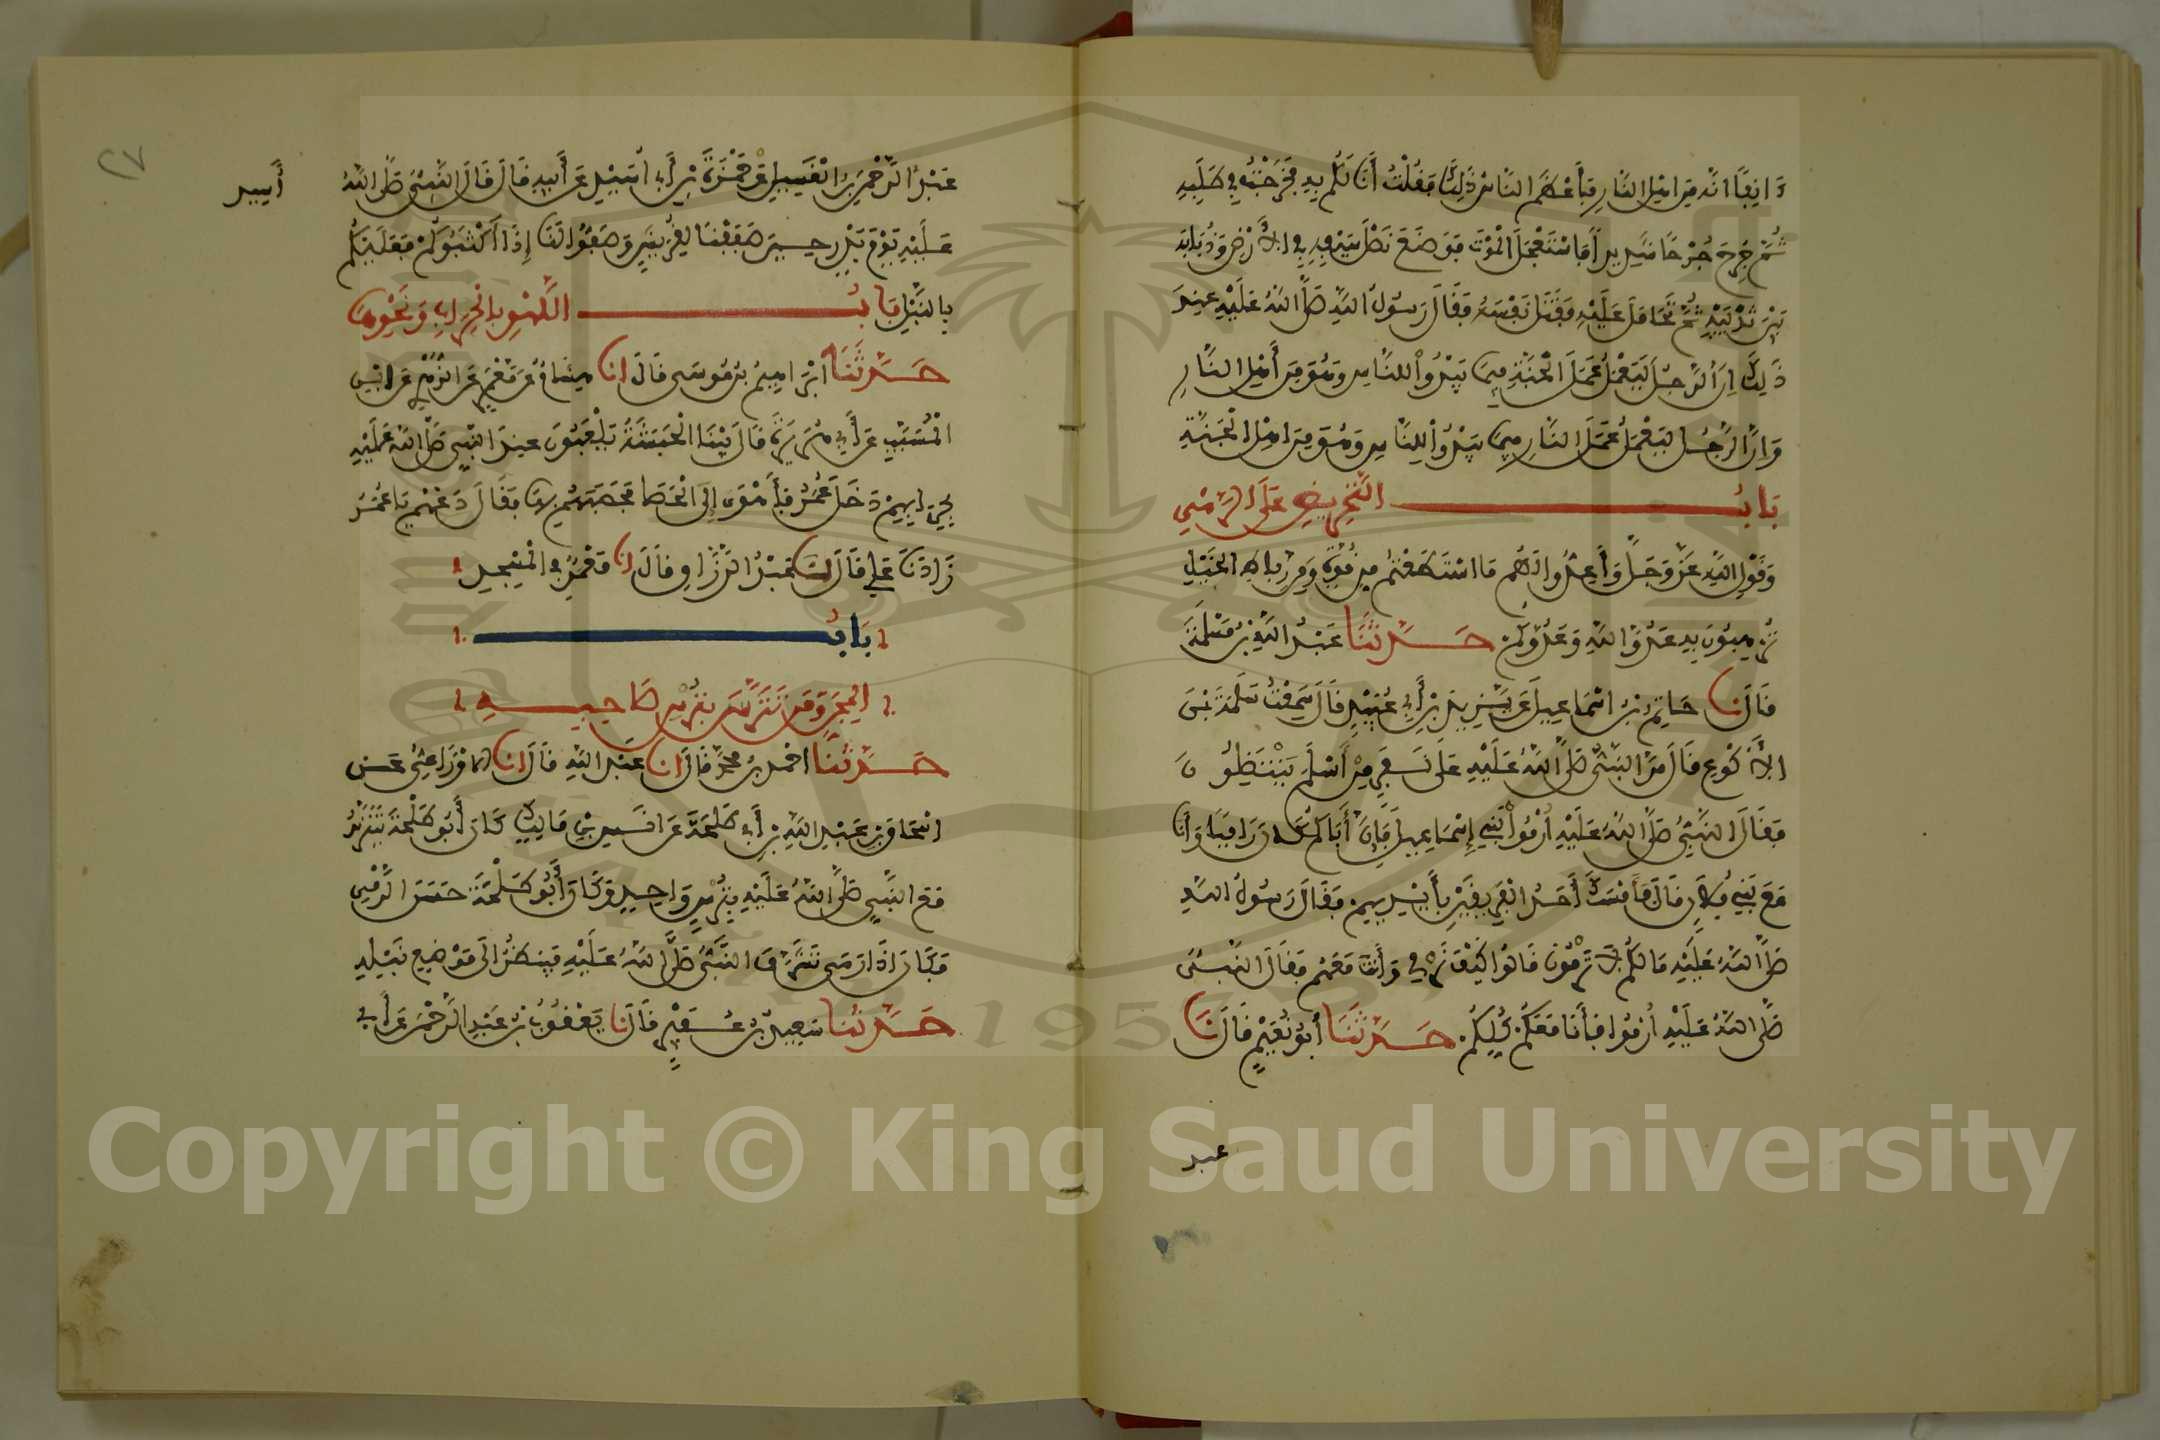 ءَانِفًا انّه مِن اهْلِ النَّارِ فَأَعْظَمَ النَّاسُ ذَلِكَ فَقُلْتُ أَنَا لَكُم بِهِ فَخَرَجْتُ فِي طَلَبِهِ
ثُمَّ جُرِحَ جُرْحًا شَدِيدًا فَاسْتَعْجَلَ الْمَوْتَ فَوَضَعَ نَصْلَ سَيْفِهِ فِي الأَرْضِ وَذُبَابَهُ
بَيْنَ ثَدْيَيْهِ ثُمَّ تَحَامَلَ عَلَيْهِ فَقَتَلَ نَفْسَهُ فَقَالَ رَسُولُ اللهِ صَلَّى اللهُ عَلَيْهِ عِندَ
ذَلِكَ إِنَّ الرَّجُلَ لَيَعْمَلُ عَمَلَ الْجَنَّةِ فِيمَا يَبْدُواْ لِلنَّاسِ وَهُوَ مِنَ أَهْلِ النَّارِ
وَإِنَّ الرَّجُلَ لَيَعْمَلُ عَمَلَ النَّارِ فِيمَا يَبْدُواْ لِلنَّاسِ وَهُوَ مِنَ اهْلِ الْجَنَّةِ
بَابُ التَّحْرِيضِ عَلَى الرَّمْيِ
وَقَوْلِ اللهِ عَزَّ وَجَلَّ وَأَعِدُّوا لَهُم مَا اسْتَطَعْتُم مِن قُوَّةٍ وَمِن رِبَاطِ الخَيْلِ
تُرْهِبُونَ بِهِ عَدُوَّ اللهِ وَعَدُوَّكُمْ حَدَّثَنَا عَبْدُ اللهِ بْنُ مَسْلَمَةَ
قَالَ نَا حَاتِمُ بْنُ اسْمَاعِيلَ عَن يَزِيدَ بْنِ أَبِي عُبَيْدٍ قَالَ سَمِعْتُ سَلَمَةَ بْنَ
الأَكْوَعِ قَالَ مَرَّ النَّبِيُّ صَلَّى اللهُ عَلَيْهِ عَلَى نَفَرٍ مِنْ أَسْلَمَ يَنْتَضِلُونَ
فَقَالَ النَّبِيُّ صَلَّى اللهُ عَلَيْهِ ارْمُواْ بَنِي إِسْمَاعِيلَ فَإِنَّ أَبَاكُمْ كَانَ رَامِيًا وَأَنَا
مَعَ بَنِي فُلَانٍ قَالَ فَأَمْسَكَ أَحَدُ الفَرِيقَيْنِ بِأَيْدِيهِمْ فَقَالَ رَسُولُ اللهِ
صَلَّى اللهُ عَلَيْهِ مَا لَكُمْ لَا تَرْمُونَ قَالُوا كَيْفَ نَرْمِي وَأَنتَ مَعَهُمْ فَقَالَ النَّبِيُّ
صَلَّى اللهُ عَلَيْهِ ارْمُوا فَأَنَا مَعَكُمْ كُلِّكُمْ. حَدَّثَنَا أَبُو نُعَيْمٍ قَالَ نَا
عبد
٢٧
عَبْدُ الرَّحْمَنِ بْنُ الْغَسِيلِ عَنْ حَمْزَةَ بْنِ أَبِي أُسَيْدٍ عَنْ أَبِيهِ قَالَ قَالَ النَّبِيُّ صَلَّى اللهُ
عَلَيْهِ يَوْمَ بَدْرٍ حِينَ صَفَفْنَا لِقُرَيْشٍ وَصَفُّوا لَنَا إِذَا أَكْثَبُوكُمْ فَعَلَيْكُم
بِالنَّبْلِ بَابُ اللَّهْوِ بِالْحِرَابِ وَنَحْوِهَا
حَدَّثَنَا ابْرَاهِيمُ بْنُ مُوسَى قَالَ انا هِشَامٌ عَن مَعْمَرٍ عَنِ الزُّهْرِيِّ عَنِ ابْنِ
الْمُسَيَّبِ عَن أَبِي هُرَيْرَةَ قَالَ بَيْنَا الْحَبَشَةُ يَلْعَبُونَ عِندَ النَّبِيِّ صَلَّى اللهُ عَلَيْهِ
بِحِرَابِهِمْ دَخَلَ عُمَرُ فَأَهْوَى إِلَى الْحَصَا فَحَصَبَهُمْ بِهَا فَقَالَ دَعْهُمْ يَا عُمَرُ
زَادَنَا عَلِي قَالَ نا عَبْدُ الرَّزَّاقِ قَالَ انا مَعْمَرٌ فِي الْمَسْجِدِ
بَابُ
الْمِجَنِّ وَمَن تَتَرَّسَ بِتُرْسِ صَاحِبِهِ
حَدَّثَنَا احْمَدُ بْنُ مُحَمَّدٍ قَالَ انا عَبْدُ اللهِ قَالَ انا الأوْزَاعِيُّ عَن
اسْحَاقَ بْنِ عَبْدِ اللهِ بْنِ أَبِي طَلْحَةَ عَن انَسِ بْنِ مَالِكٍ كَانَ أَبُو طَلْحَةَ يَتَتَرَّسُ
مَعَ النَّبِيِّ صَلَّى اللهُ عَلَيْهِ بِتُرْسٍ وَاحِدٍ وَكَانَ أَبُو طَلْحَةَ حَسَنَ الرَّمْيِ
فَكَانَ إِذَا رَمَى تَشَرَّفَ النَّبِيُّ صَلَّى اللهُ عَلَيْهِ فَيَنظُرُ الَى مَوْضِعِ نَبْلِهِ
حَدَّثَنَا سَعِيدُ بْنُ عُفَيْرٍ قَالَ نَا يَعْقُوبُ بْنُ عَبْدِ الرَّحْمَنِ عَن أَبِي
Copyright © King Saud University
1957